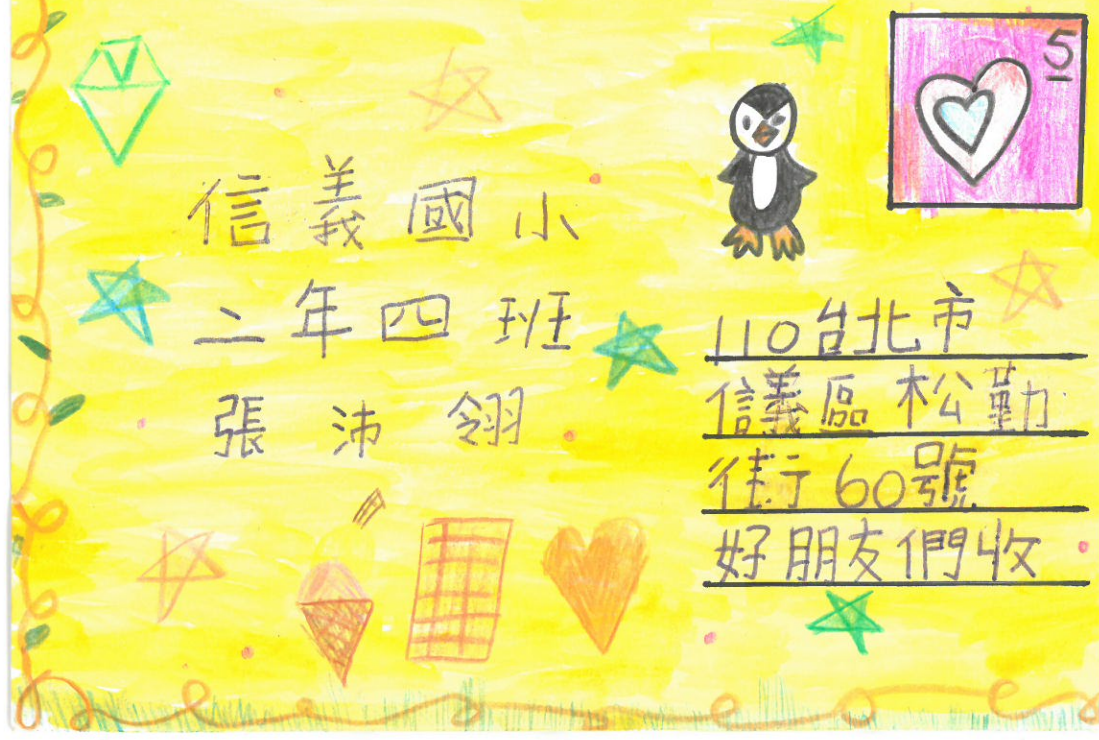 5
信義國小
二年四班
張沛翎
110台北市
信義區松勤
街60號
好朋友們收